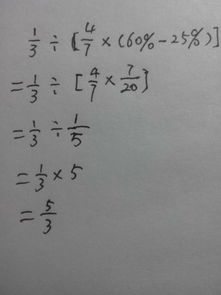 1/3 ÷ [4/7 × (60% - 25%)]
= 1/3 ÷ [4/7 × 7/20]
= 1/3 ÷ 1/5
= 1/3 × 5
= 5/3